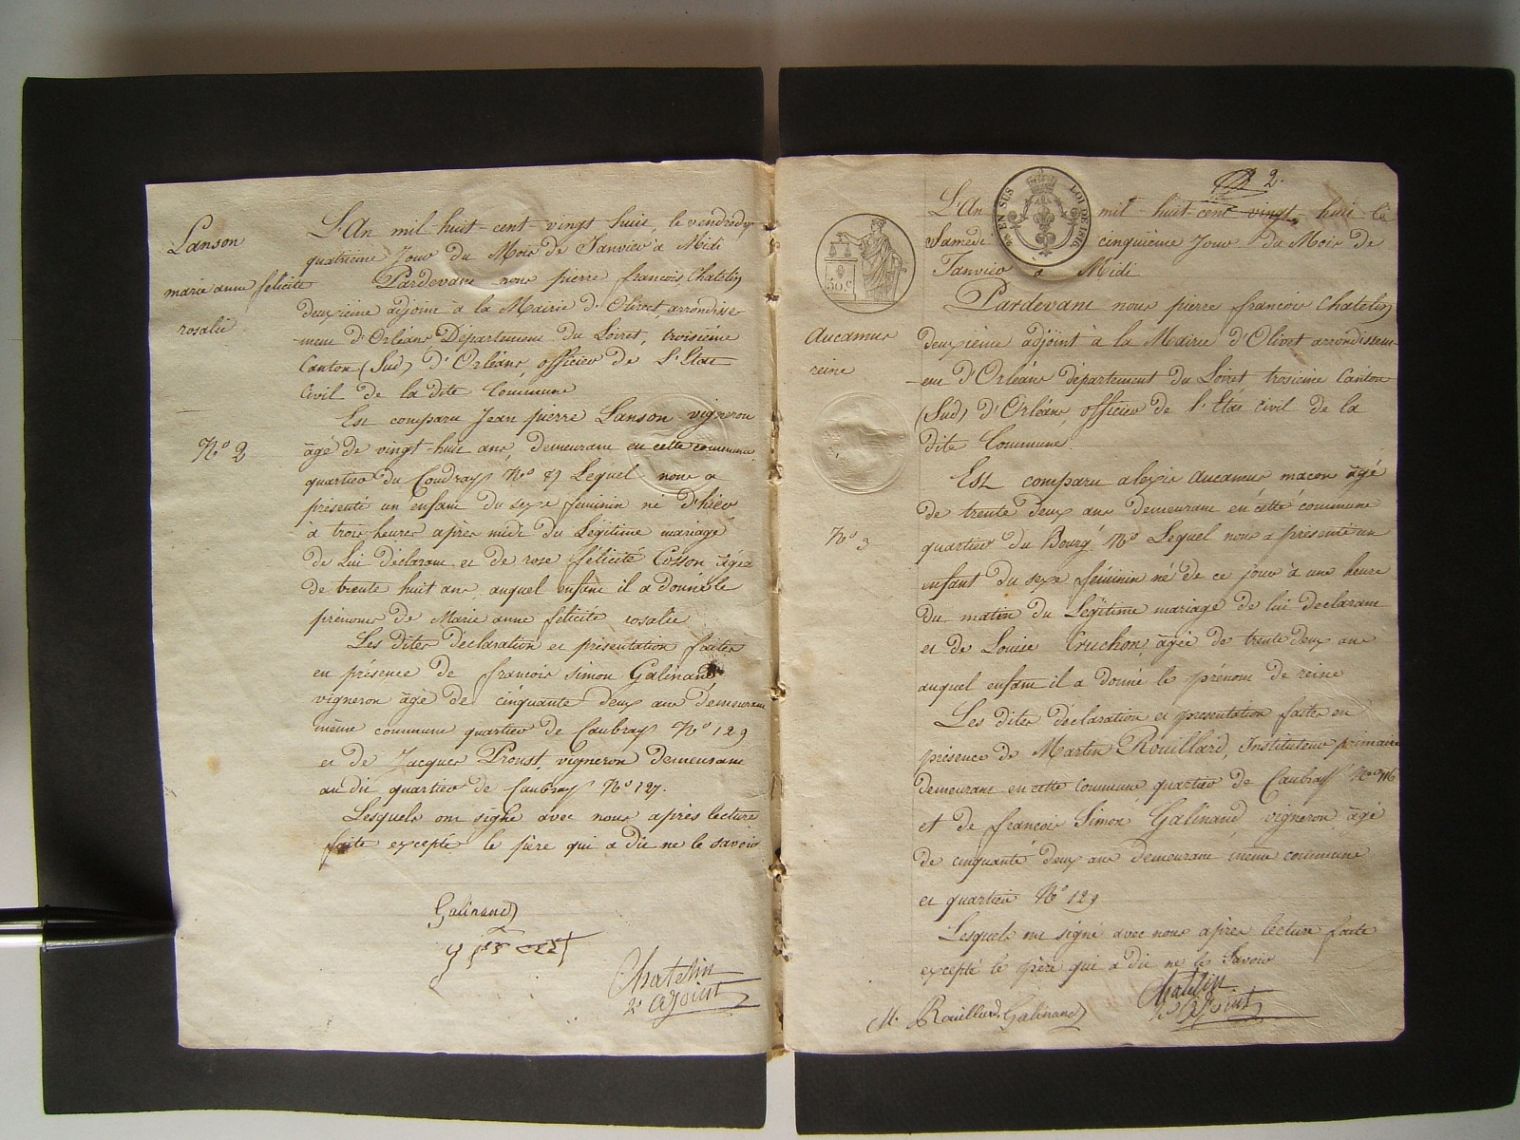 Lanson
marie anne félicité
rosalie
No 2
L'An mil huit-cent-vingt huit, le vendredy
quatrieme Jour du Mois de Janvier à Midi
Pardevant nous pierre françois Chatelin
deuxieme adjoint à la Mairie d'Olivet arrondisse
-ment d'Orléans Département du Loiret, troisième
Canton (Sud) d'Orléans, officier de l'Etat
Civil de la dite Commune
Est comparu Jean pierre Lanson vigneron
âgé de vingt-huit ans, demeurant en cette commune
quartier du Coudray No Lequel nous a
présenté un enfant du sexe féminin né d'hier
à trois heures après midi du Légitime mariage
de Lui déclarant et de rose félicité Cosson âgée
de trente huit ans, auquel enfant il a donné le
prénoms de Marie anne félicité rosalie
Les dites déclaration et présentation faites
en présence de francois Simon Galinand
vigneron âgé de cinquante deux ans demeurant
même commune quartier de Caubray No 129
et de Jacques Proust, vigneron demeurant
au dit quartier de Caubray No 127.
Lesquels ont signé avec nous après lecture
faite excepté le père qui a dit ne le savoir
Galinand
Chatelin
2e adjoint
2.
EN SUS LOI DE 1816
50 c
Aucamus
reine
No 3
L'An mil huit-cent vingt huit le
Samedi cinquieme Jour du Mois de
Janvier à Midi
Pardevant nous pierre françois Chatelin
deuxième adjoint à la Mairie d'Olivet arrondissem
-ent d'Orléans département du Loiret troisieme Canton
(Sud) d'Orléans, officier de l'Etat Civil de la
dite Commune
Est comparu alexis Aucamus macon âgé
de trente deux ans demeurant en cette commune
quartier du Bourg No Lequel nous a présenté un
enfant du sexe féminin né de ce jour à une heure
du matin du Légitime mariage de lui déclarant
et de Louise Cruchon, âgée de trente deux ans
auquel enfant il a donné le prénom de reine
Les dites déclaration et présentation faites en
présence de Martin Rouillard, Instituteur primaire
demeurant en cette commune quartier de Caubray No 116
et de françois Simon Galinand, vigneron âgé
de cinquante deux ans demeurant même commune
et quartier No 129
Lesquels ont signé avec nous après lecture faite
excepté le père qui a dit ne le Savoir
M. Rouillard Galinand Chatelin
2e adjoint